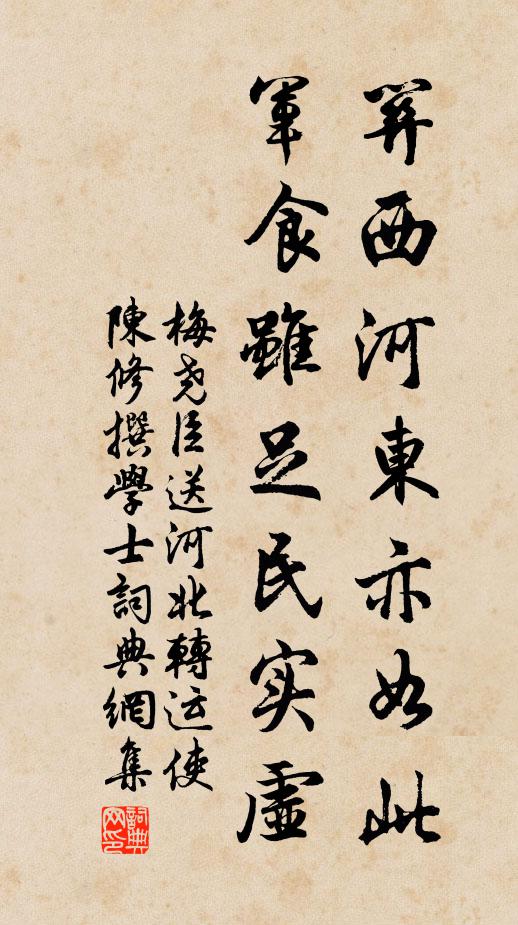 關西河東亦如此
軍食雖足民实虛
梅尧臣送河北轉运使
陳修撰學士詞典網集
詞典网印